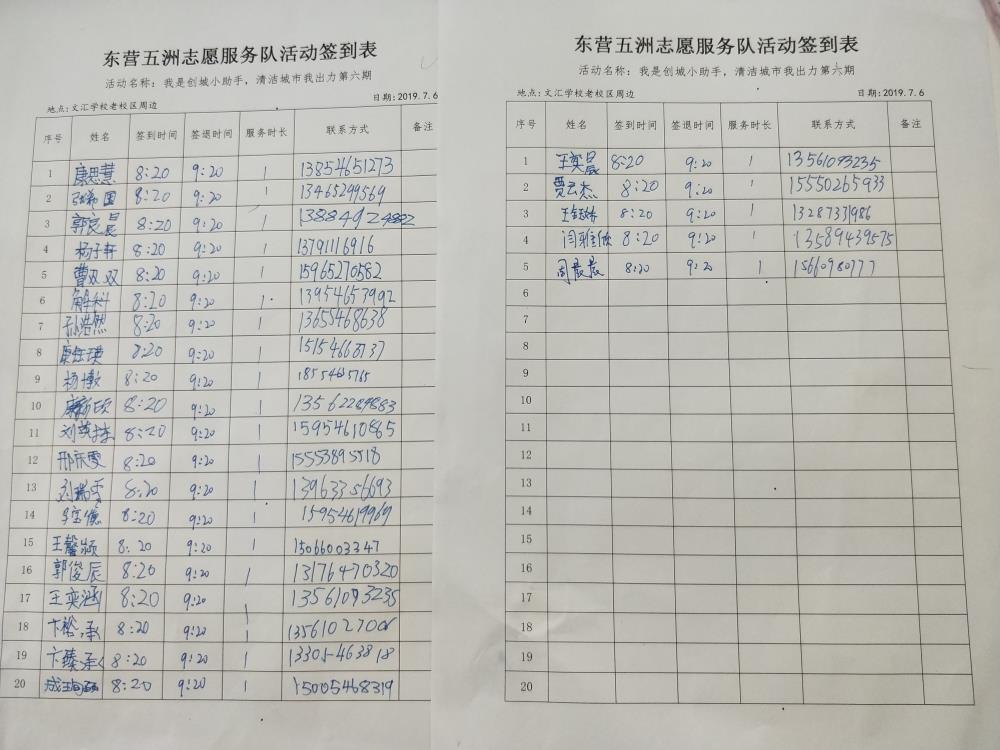 东营五洲志愿服务队活动签到表
活动名称：我是创城小助手，清洁城市我出力第六期
地点:文汇学校老校区周边 日期:2019.7.6
序号 姓名 签到时间 签退时间 服务时长 联系方式 备注
1 康思慧 8:20 9:20 1 13854651273
2 8:20 9:20 1 13465299569
3 郭良晨 8:20 9:20 1 13884924882
4 杨子轩 8:20 9:20 1 13791116916
5 曹双双 8:20 9:20 1 15965270582
6 解科 8:20 9:20 1 13954657992
7 孙浩然 8:20 9:20 1 13655468638
8 8:20 9:20 1
9 杨 8:20 9:20 1
10 8:20 9:20 1 13562289883
11 刘英栋 8:20 9:20 1 15954610865
12 邢庆雯 8:20 9:20 1 15553895518
13 刘瑞 8:20 9:20 1 13963356693
14 8:20 9:20 1 15954619969
15 王馨颍 8:20 9:20 1 15066003347
16 郭俊辰 8:20 9:20 1 13176470320
17 王奕涵 8:20 9:20 1 13561093235
18 卞裕承 8:20 9:20 1
19 卞臻承 8:20 9:20 1 13305463818
20 8:20 9:20 1 15005468319
东营五洲志愿服务队活动签到表
活动名称：我是创城小助手，清洁城市我出力第六期
地点:文汇学校老校区周边 日期:2019.7.6
序号 姓名 签到时间 签退时间 服务时长 联系方式 备注
1 王奕晨 8:20 9:20 1 13561093235
2 贾云杰 8:20 9:20 1 15550265933
3 8:20 9:20 1 13287331986
4 闫雅欣 8:20 9:20 1 13589439575
5 周晨晨 8:20 9:20 1 15610980777
6
7
8
9
10
11
12
13
14
15
16
17
18
19
20